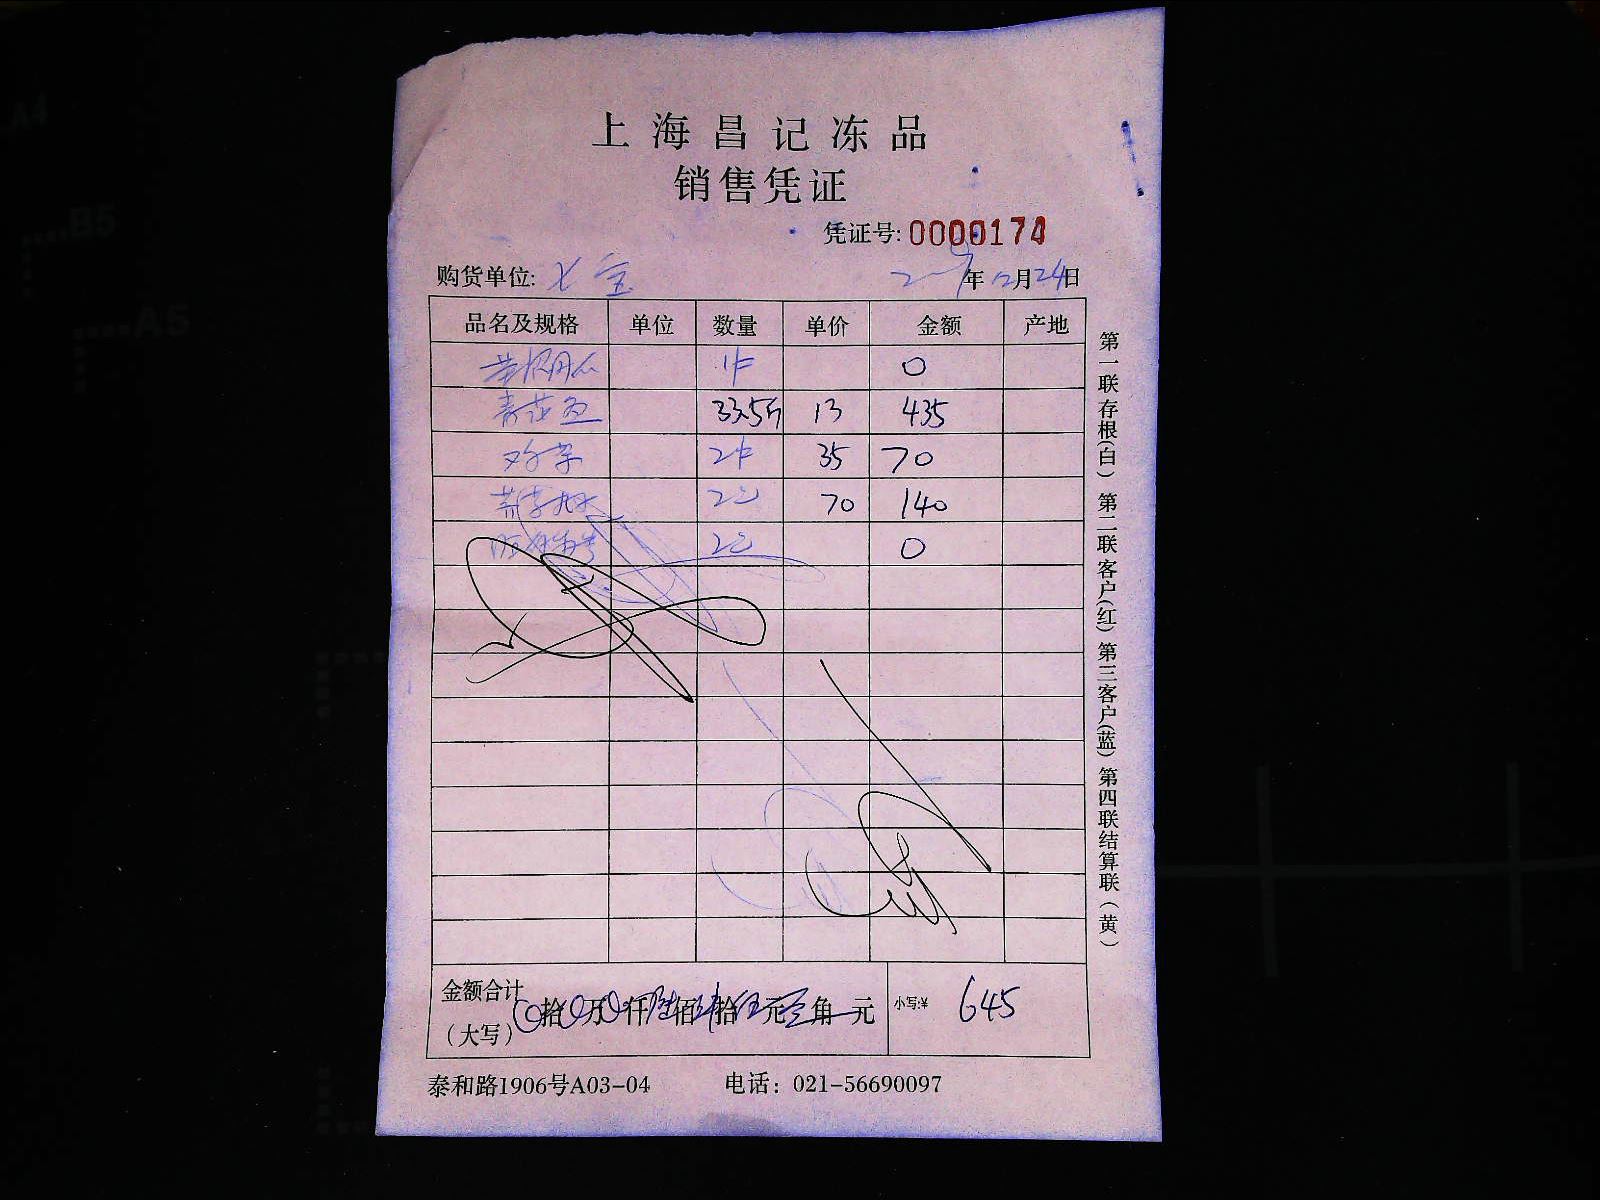 上海昌记冻品
销售凭证
凭证号: 0000174
购货单位: 七宝 年12月24日
品名及规格 单位 数量 单价 金额 产地
1件 0
33.5斤 13 435
2件 35 70
70 140
0
金额合计（大写） 拾 万 仟 陆佰 肆拾 伍元 角 元 小写:¥ 645
泰和路1906号A03-04 电话：021-56690097
第一联存根(白) 第二联客户(红) 第三客户(蓝) 第四联结算联（黄）
A4
B5
A5